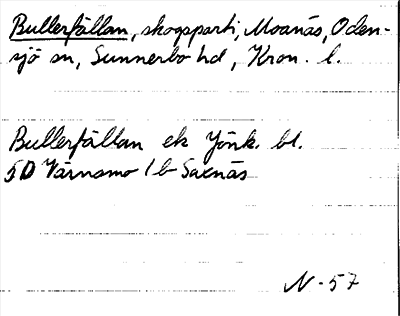 Bullerfällan, skogsparti, Moanäs, Oden-
sjö sn, Sunnerbo hd, Kron. l.
Bullerfällan ek Jönk. bl.
5D Värnamo 1 b Saxnäs
N-57